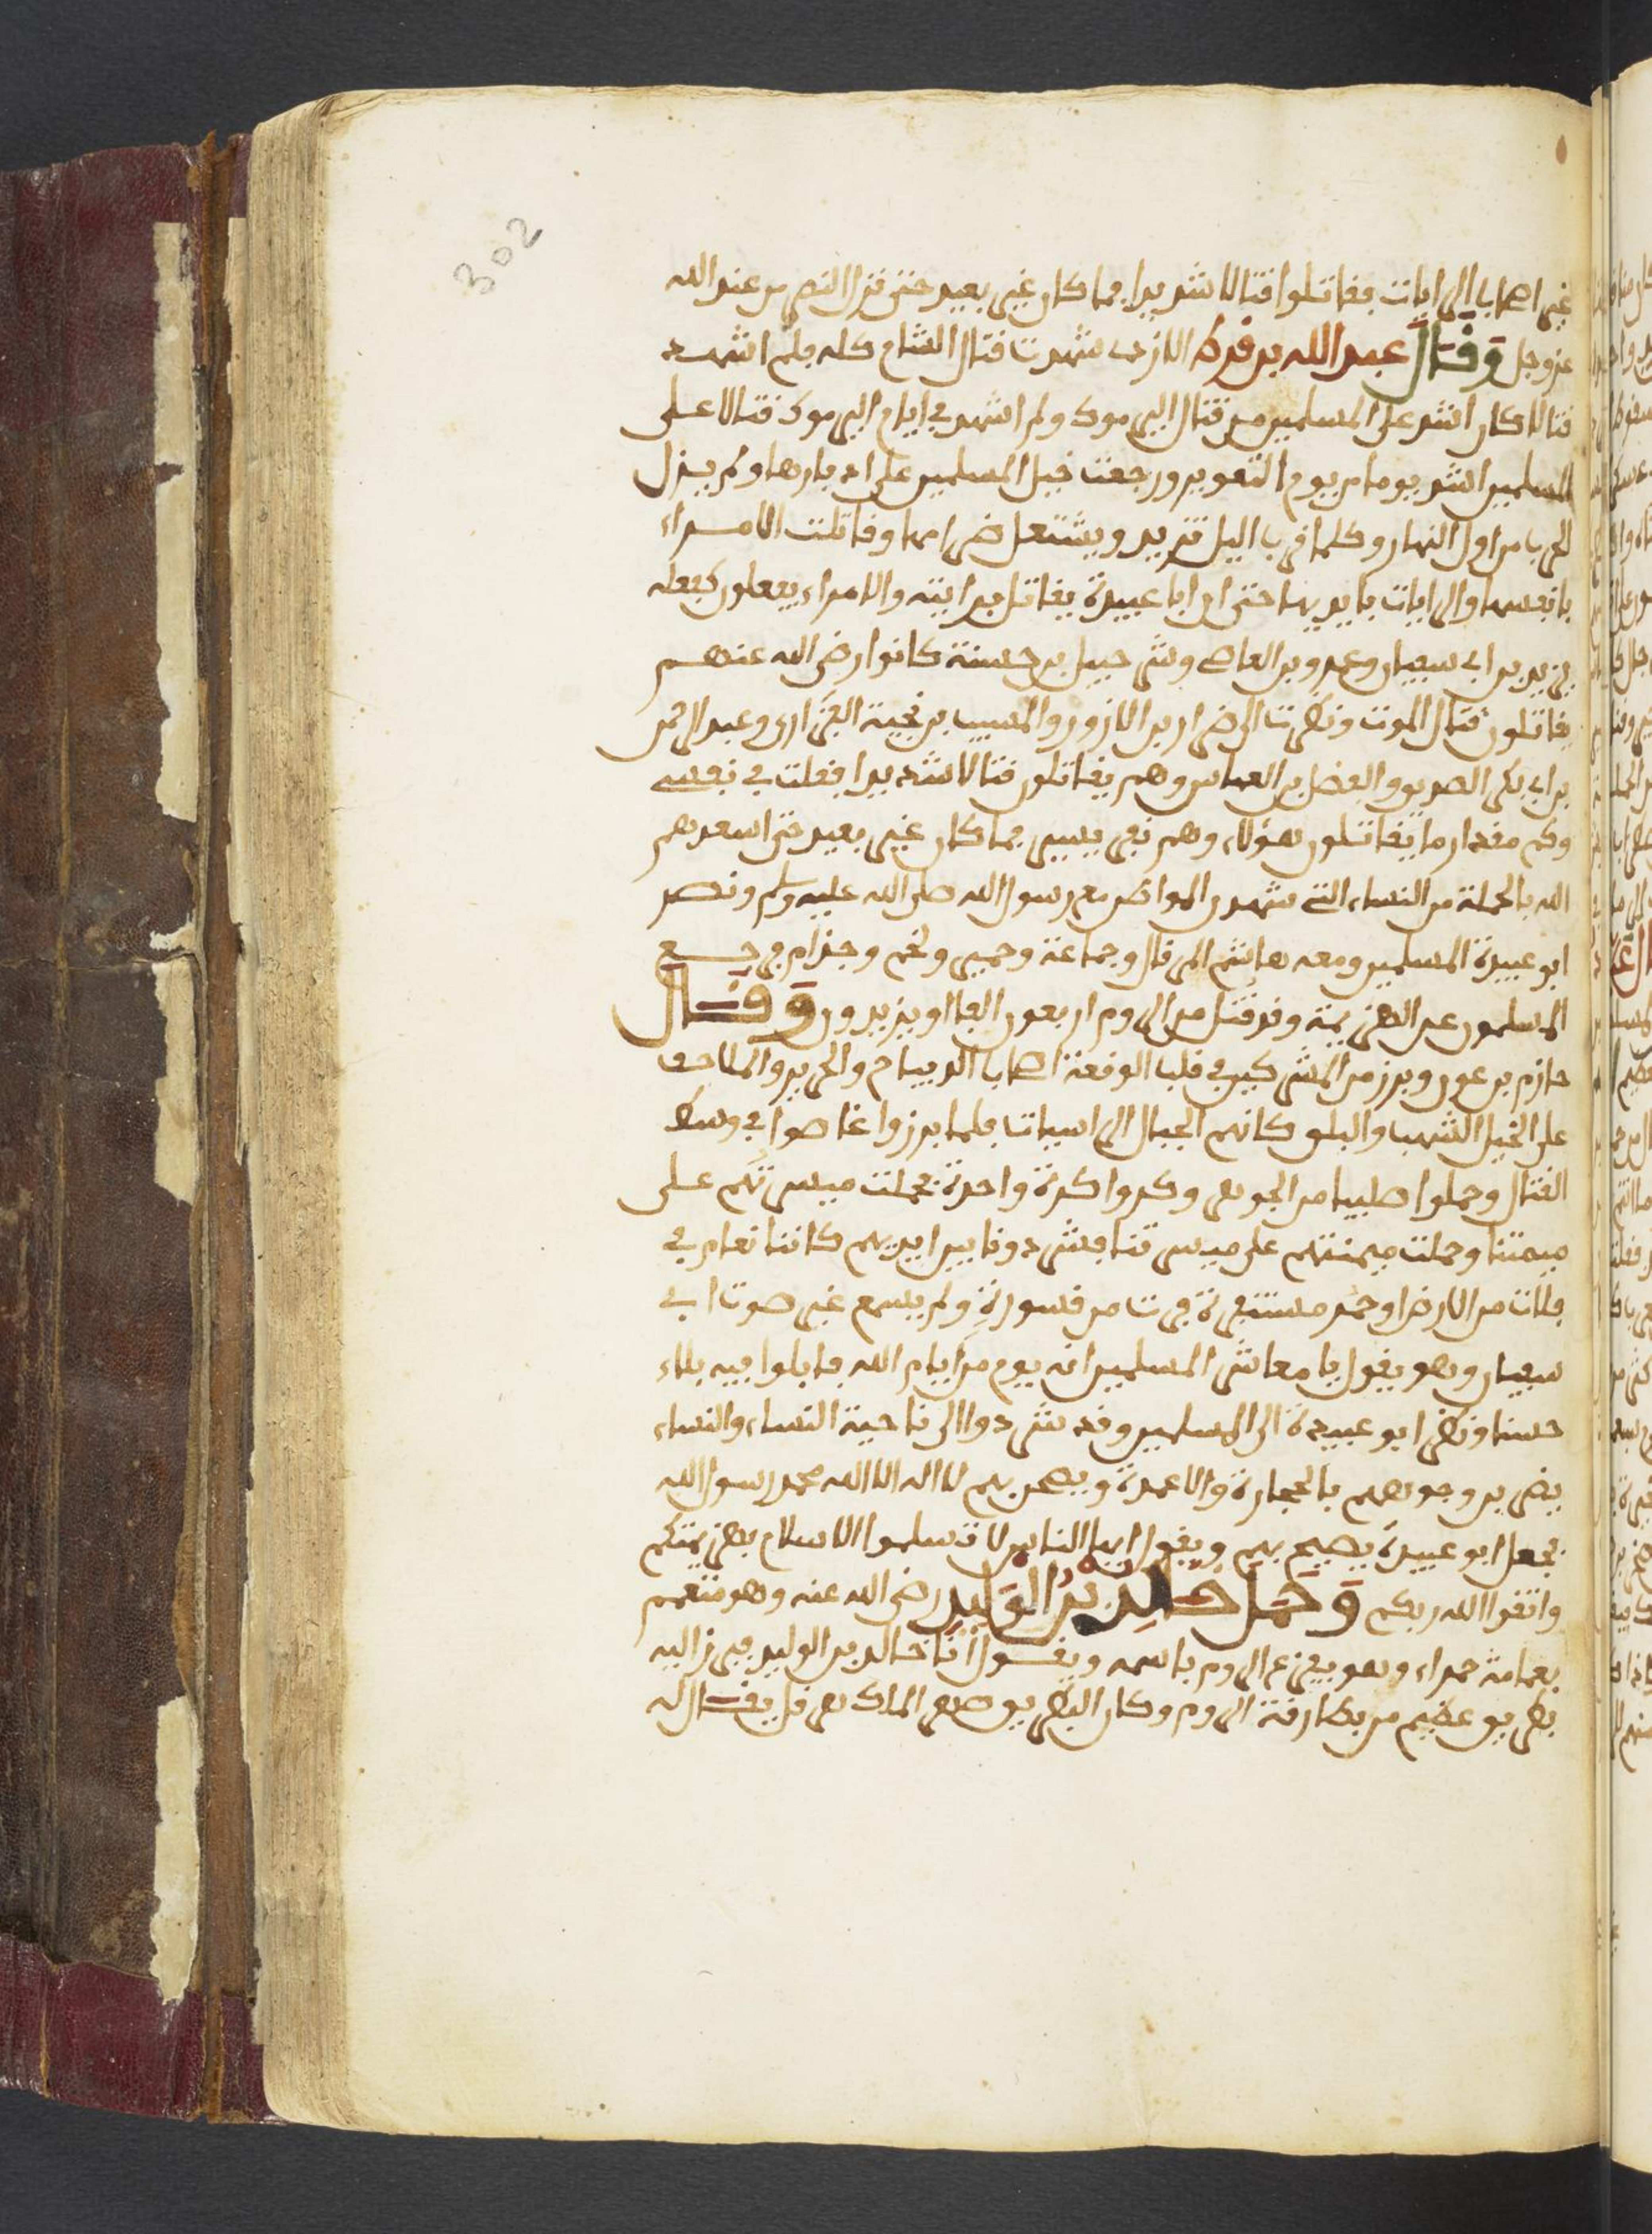 302
غير اصحاب الرايات فقاتلوا قتالا شديدا فما كان غير بعيد حتى نزل النصر من عند الله
عز وجل وقال عبد الله بن قرط الازدي شهدت قتال الشام كله فلم اشهد
قتالا كان اشد على المسلمين من قتال اليرموك ولم اشهد في ايام اليرموك قتالا على
المسلمين اشد يوما من يوم التعوير ورجعت خيل المسلمين على ادبارها ولم يزل
الحرب من اول النهار وكلما قرب اليل تزيد ويشتعل ضرامها وقاتلت الامراء
بانفسها والرايات بايديها حتى ان ابا عبيدة يقاتل برايته والامراء يفعلون كفعله
يزيد بن ابي سفيان وعمرو بن العاص وشرحبيل بن حسنة كانوا رضي الله عنهم
يقاتلون قتال الموت ونظرت الى ضرار بن الازور والمسيب بن نجيبة الفزاري وعبد الرحمن
بن ابي بكر الصديق والفضل بن العباس وهم يقاتلون قتالا شديدا فقلت في نفسي
وكم مقدار ما يقاتلون هؤلاء وهم نفر يسير فما كان غير بعيد حتى اسعدهم
الله بالحملة من النساء التي شهدن المواطن مع رسول الله صلى الله عليه وسلم ونصر
ابو عبيدة المسلمين ومعه هاشم المرقال وجماعة وحمير ولخم وجذام فرجع
المسلمون عن الهزيمة وقد قتل من الروم اربعون الفا او يزيدون وقال
حازم بن عون وبرز من المشركين في قلب الوقعة اصحاب الديباج والحرير والملاحف
على الخيل الشهب والبلق كانهم الجبال الراسيات فلما برزوا غاصوا في وسط
القتال وحملوا صليبا من الجوهر وكروا كرة واحدة فحملت ميسرتهم على
ميمنتنا وحملت ميمنتهم على ميسرتنا فشردونا بين ايديهم كاننا نعام في
فلات من الارض او حمر مستنفرة فرت من قسورة ولم يسمع غير صوت ابي
سفيان وهو يقول يا معاشر المسلمين انه يوم من ايام الله فابلوا فيه بلاء
حسنا ونظر ابو عبيدة الى المسلمين وقد شردوا الى ناحية النساء والنساء
يضربن وجوههم بالحجارة والاعمدة ويصحن بهم لا اله الا الله محمد رسول الله
فجعل ابو عبيدة يصيح بهم ويقول ايها الناس لا تسلموا الاسلام بهزيمتكم
واتقوا الله ربكم وحمل خالد بن الوليد رضي الله عنه وهو متعمم
بعمامة حمراء وهو يفزع الروم باسمه ويقول انا خالد بن الوليد فبرز اليه
بطريق عظيم من بطارقة الروم وكان البطريق صهر الملك هرقل يقال له